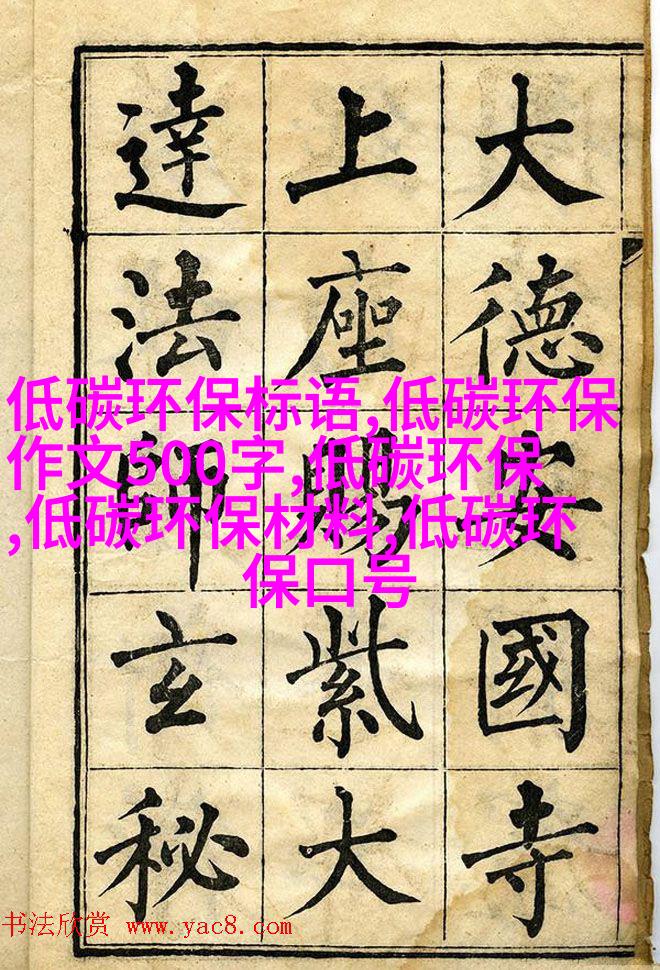 大德安國寺
上座賜紫大
達法師玄秘
低碳环保标语,低碳环保
作文500字,低碳环保
,低碳环保材料,低碳环
保口号
书法欣赏 www.yac8.com